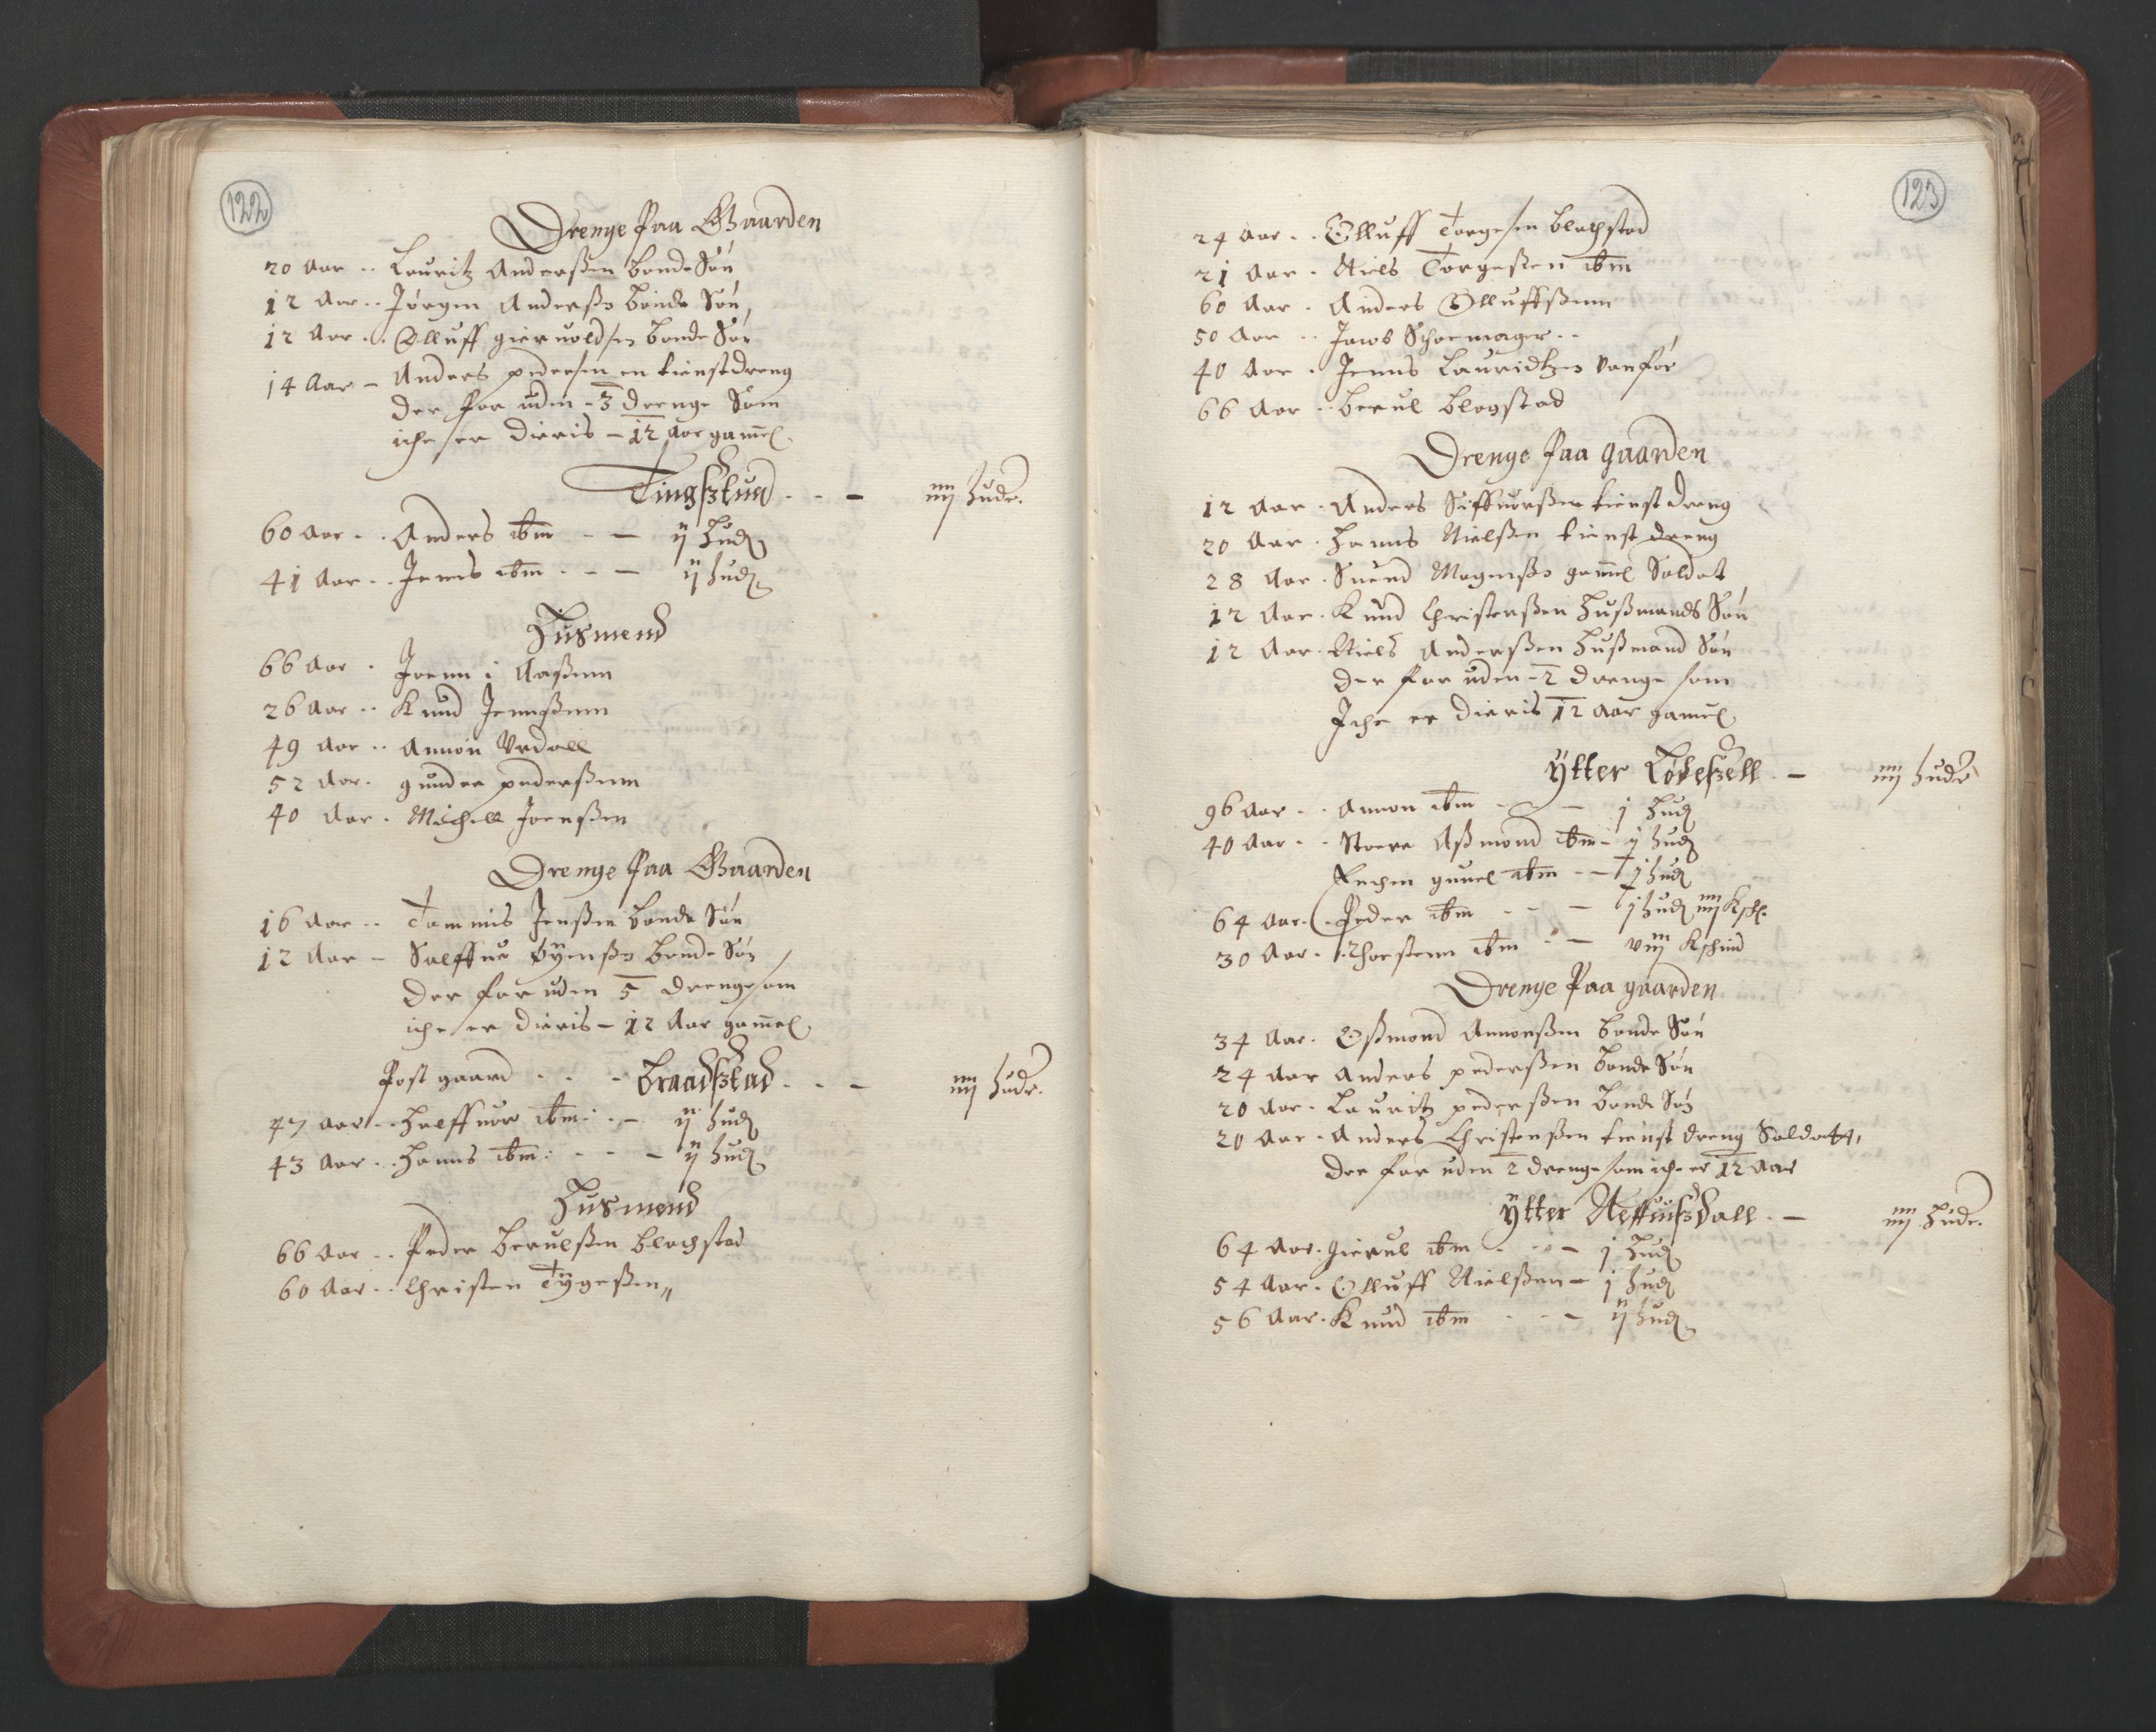 122
Drenge Paa Gaarden
20 Aar .. Lauritz Anderßen bonde Søn
12 Aar .. Jørgen Anderßø bonde Søn
12 Aar .. Olluff giervoldsen bonde Søn
14 Aar – Anders pedersen en tienstdreng
der for uden – 3 drenge Som
iche er dieris – 12 Aar gamel
Tingstued . . – iiij huder.
60 Aar .. Anders ibm – – ij hud
41 Aar .. Jenns ibm . – – ij hud
Husmend
66 Aar . Joenn i Aaßum
26 Aar .. Knud Jennßenn
49 Aar .. Annon Urdall
52 Aar . gunder pederßenn
40 Aar . Michell Joenßen
Drenge Paa Gaarden
16 Aar .. Tommis Jenßen bonde Søn
12 Aar – Salffue Øÿenßø bonde Søn
der for uden 5 drenge som
iche er dieris – 12 Aar gamel
Post gaard . . – braadstad . . – iiij huder.
47 aar .. Halffuor ibm: . – ij hud
43 Aar .. Hanns ibm: . – – ij hud
Husmend
66 Aar .. Peder Berulßen blachstad
60 Aar .. Christen Tÿgeßen
123
24 Aar .. Olluff Torgesen blachstad
21 Aar . Niels Torgeßen ibm
60 Aar . Anders Olluffßenn
50 Aar .. Jacob Schoemager ..
40 Aar . Jenns Lauridtzen vanfør
66 Aar .. berul blagstad
Drenge Paa gaarden
12 Aar . Anders Siffuorßen tienst dreng
20 Aar . Hanns Nielßen tienst dreng
28 Aar . Suend Mogenßø gamel Soldat
12 Aar . Knud Christenßen Hußmands Søn
12 Aar . Niels Anderßen Hußmand Søn
der for uden – 2 drenge som
Iche er dieris 12 aar gamel
ÿtter Løkeszell . – iiij huder
96 Aar .. Annon ibm . – – j hud
40 Aar .. Stoere Aßmond ibm – ij hud
Enchen gunel ibm – – j hud
64 Aar . Peder ibm . – – j hud iiij Ksk.
30 Aar . Thorstenn ibm . – viij Kschind
Drenge Paa gaarden
34 Aar . Oßmond Annonßen bonde Søn
24 Aar Anders pederßen bonde Søn
20 Aar . Lauritz pederßen bonde Søn
20 Aar . Anders Christenßen tienst dreng Soldatt,
der for uden 2 drenge som iche er 12 Aar
ÿtter Neffuisdall . – iiij Huder.
64 Aar . Gierul ibm . . – j Hud
54 Aar . Olluff Nielßen – j hud
56 Aar . Knud ibm . – – ij hud